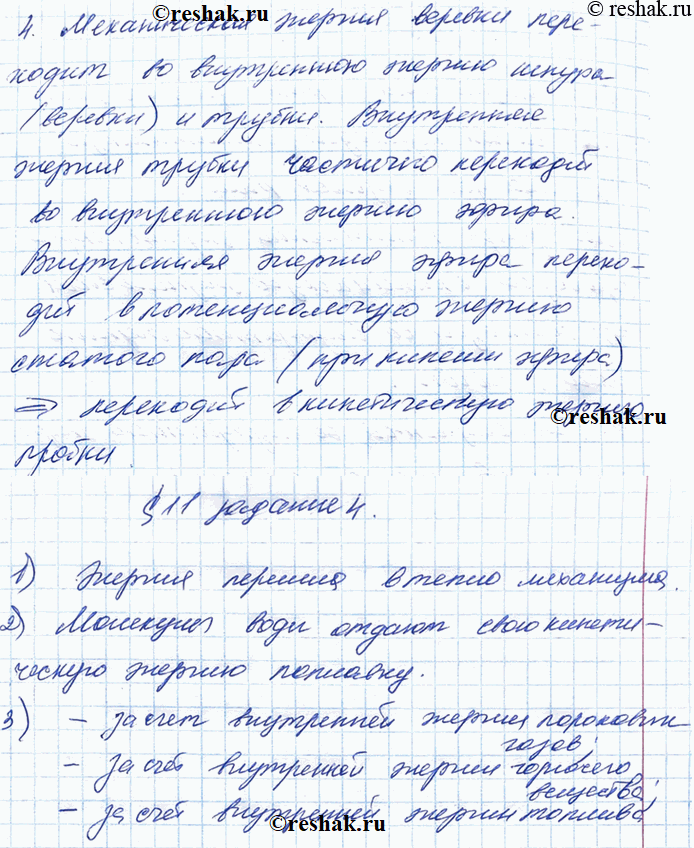 ©reshak.ru
© reshak.ru
4. Механическая энергия веревки пере-
ходит во внутреннюю энергию шнура
(веревки) и трубки. Внутренняя
энергия трубки частично переходит
во внутреннюю энергию эфира.
Внутренняя энергия эфира перехо-
дит в потенциальную энергию
сжатого пара (при кипении эфира)
⇒ переходит в кинетическую энергию
©reshak.ru
пробки
§11 задание 4.
1) Энергия перешла в тепло механизма.
2) Молекулы воды отдают свою кинети-
ческую энергию поплавку.
3) – за счет внутренней энергии пороховых
газов;
– За счёт внутренней энергии горючего
вещества;
– за счёт внутренней энергии топлива
©reshak.ru